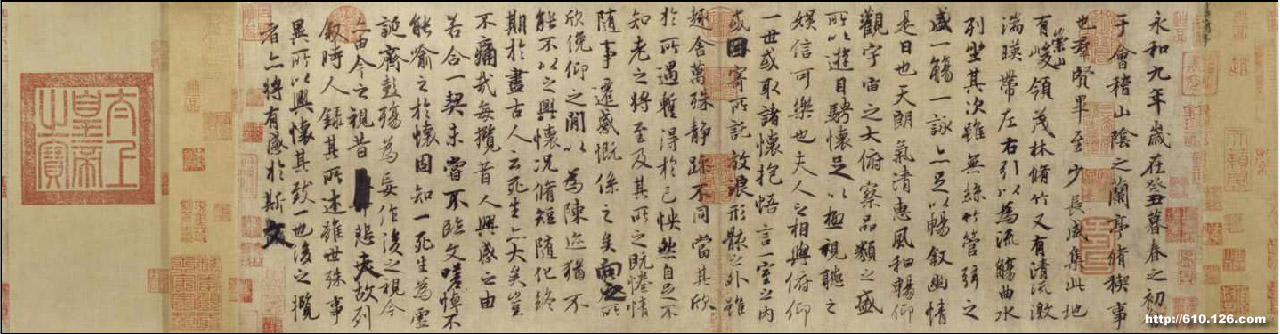 永和九年歲在癸丑暮春之初會
于會稽山陰之蘭亭脩稧事
也羣賢畢至少長咸集此地
有崇山峻領茂林脩竹又有清流激
湍暎帶左右引以為流觴曲水
列坐其次雖無絲竹管弦之
盛一觴一詠亦足以暢敘幽情
是日也天朗氣清惠風和暢仰
觀宇宙之大俯察品類之盛
所以遊目騁懷足以極視聽之
娛信可樂也夫人之相與俯仰
一世或取諸懷抱悟言一室之內
或因寄所託放浪形骸之外雖
趣舍萬殊靜躁不同當其欣
於所遇暫得於己怏然自足不
知老之將至及其所之既惓情
隨事遷感慨係之矣向之所
欣俛仰之閒以為陳迹猶不
能不以之興懷況脩短隨化終
期於盡古人云死生亦大矣豈
不痛哉每攬昔人興感之由
若合一契未嘗不臨文嗟悼不
能喻之於懷固知一死生為虛
誕齊彭殤為妄作後之視今
亦由今之視昔悲夫故列
敘時人錄其所述雖世殊事
異所以興懷其致一也後之攬
者亦將有感於斯文
太上皇帝之寶
http://610.126.com